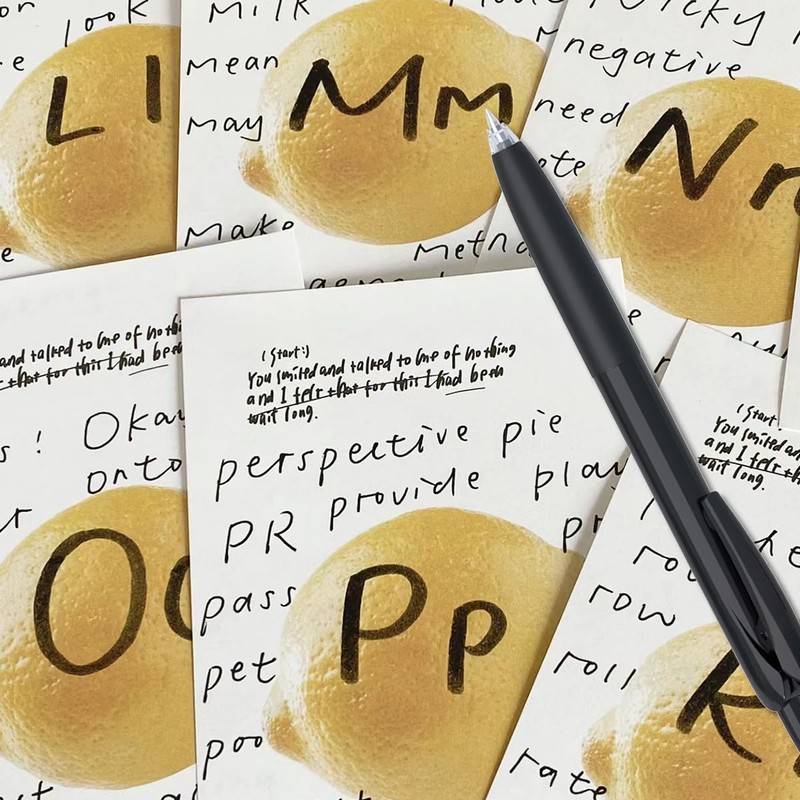 look
L l
milk
mean
Mm
may
make
negative
need
N
and talked to me of nothing
had been
Okay
onto
O
(Start:)
You smiled and talked to me of nothing
and I felt that for this I had been
wait long.
perspective pie
PR provide play
pass
Pp
pet
poo
(Start
You smiled and
and I felt th
wait long.
row
roll
R
rate